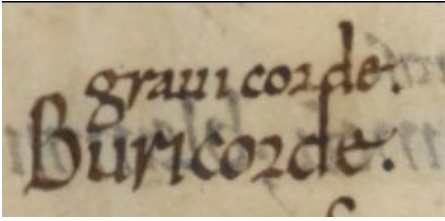 graui corde.
Buricorde.